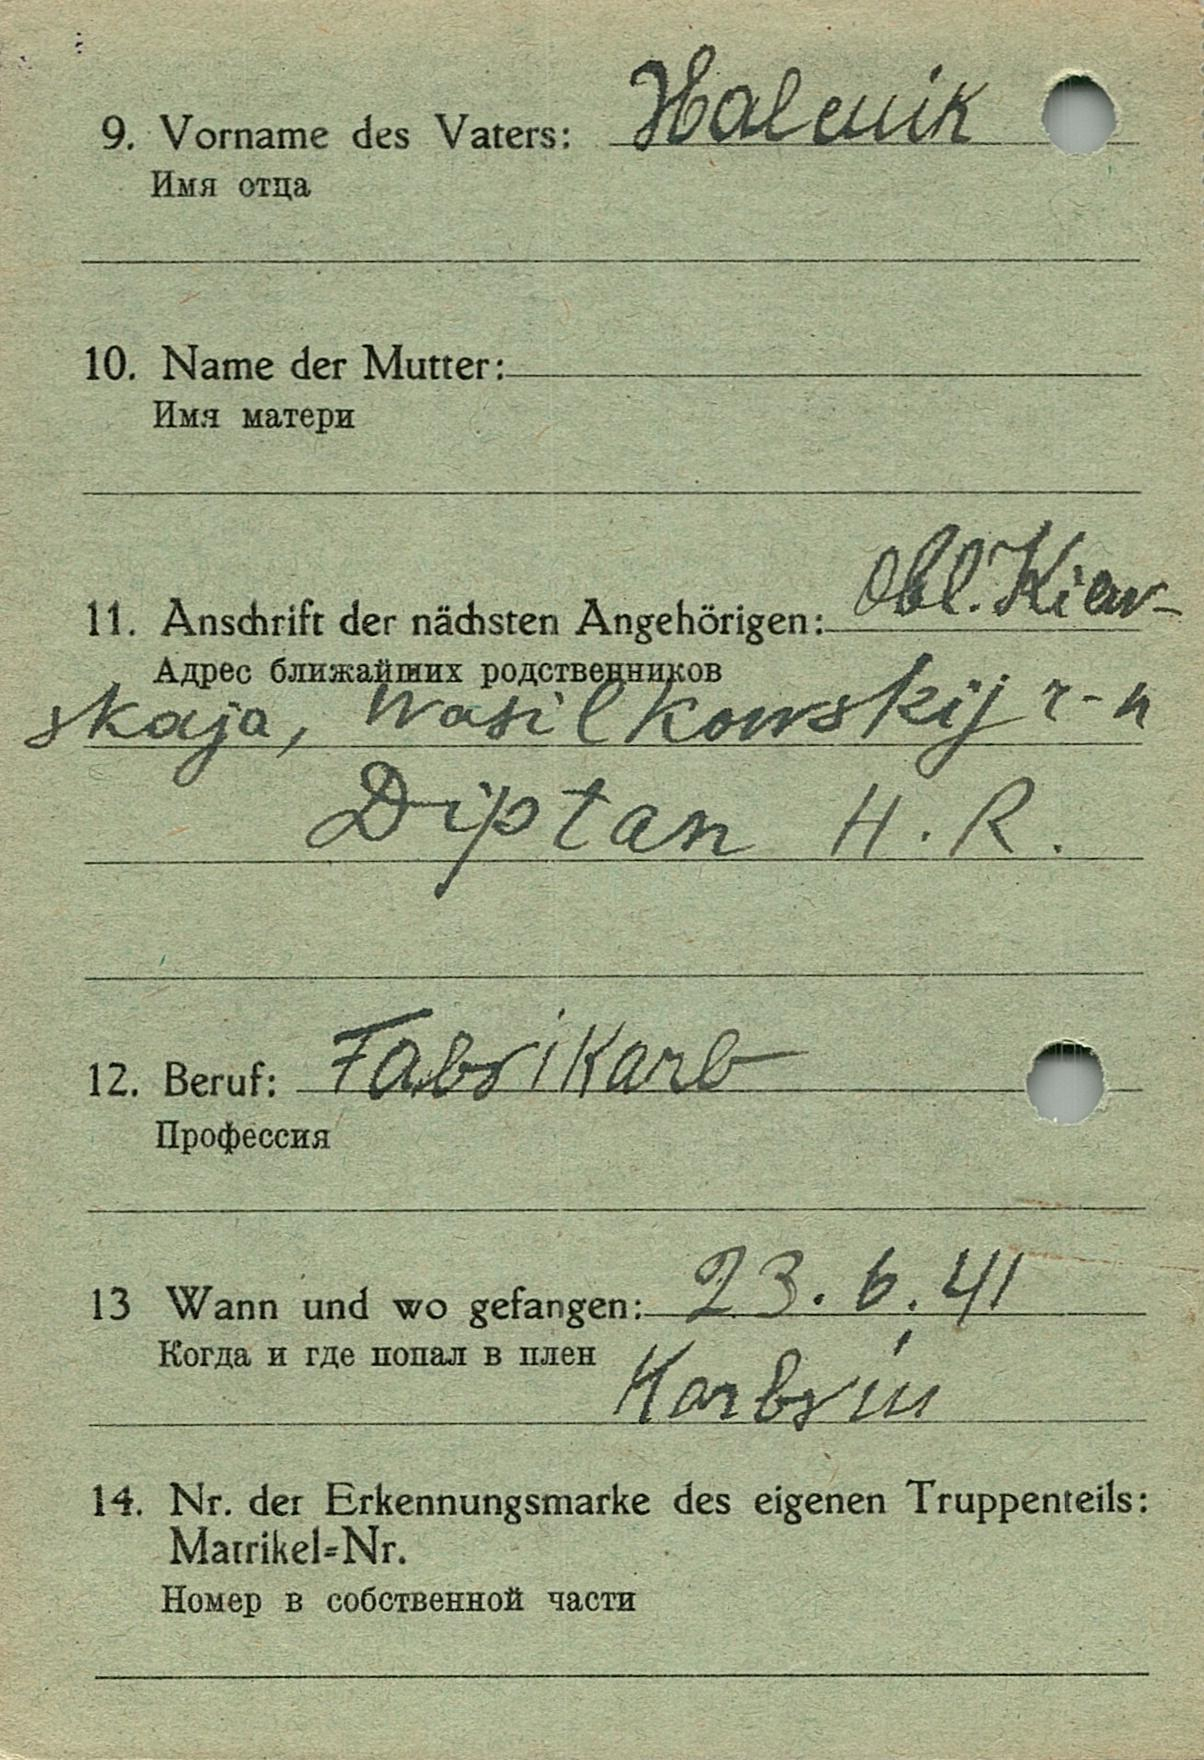 9. Vorname des Vaters: Halenik
Имя отца
10. Name der Mutter:
Имя матери
11. Anschrift der nächsten Angehörigen: Obl. Kiew-
Адрес ближайших родственников
skaja, Wasilkowskij r-n
Diptan H. R.
12. Beruf: Fabrikarb
Профессия
13 Wann und wo gefangen: 23. 6. 41
Когда и где попал в плен
Karbrin
14. Nr. der Erkennungsmarke des eigenen Truppenteils:
Matrikel=Nr.
Номер в собственной части